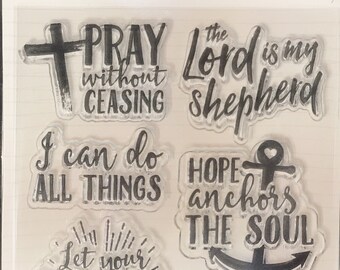 PRAY
without
CEASING
the
Lord is my
shepherd
I can do
ALL THINGS
HOPE
anchors
THE SOUL
Let your